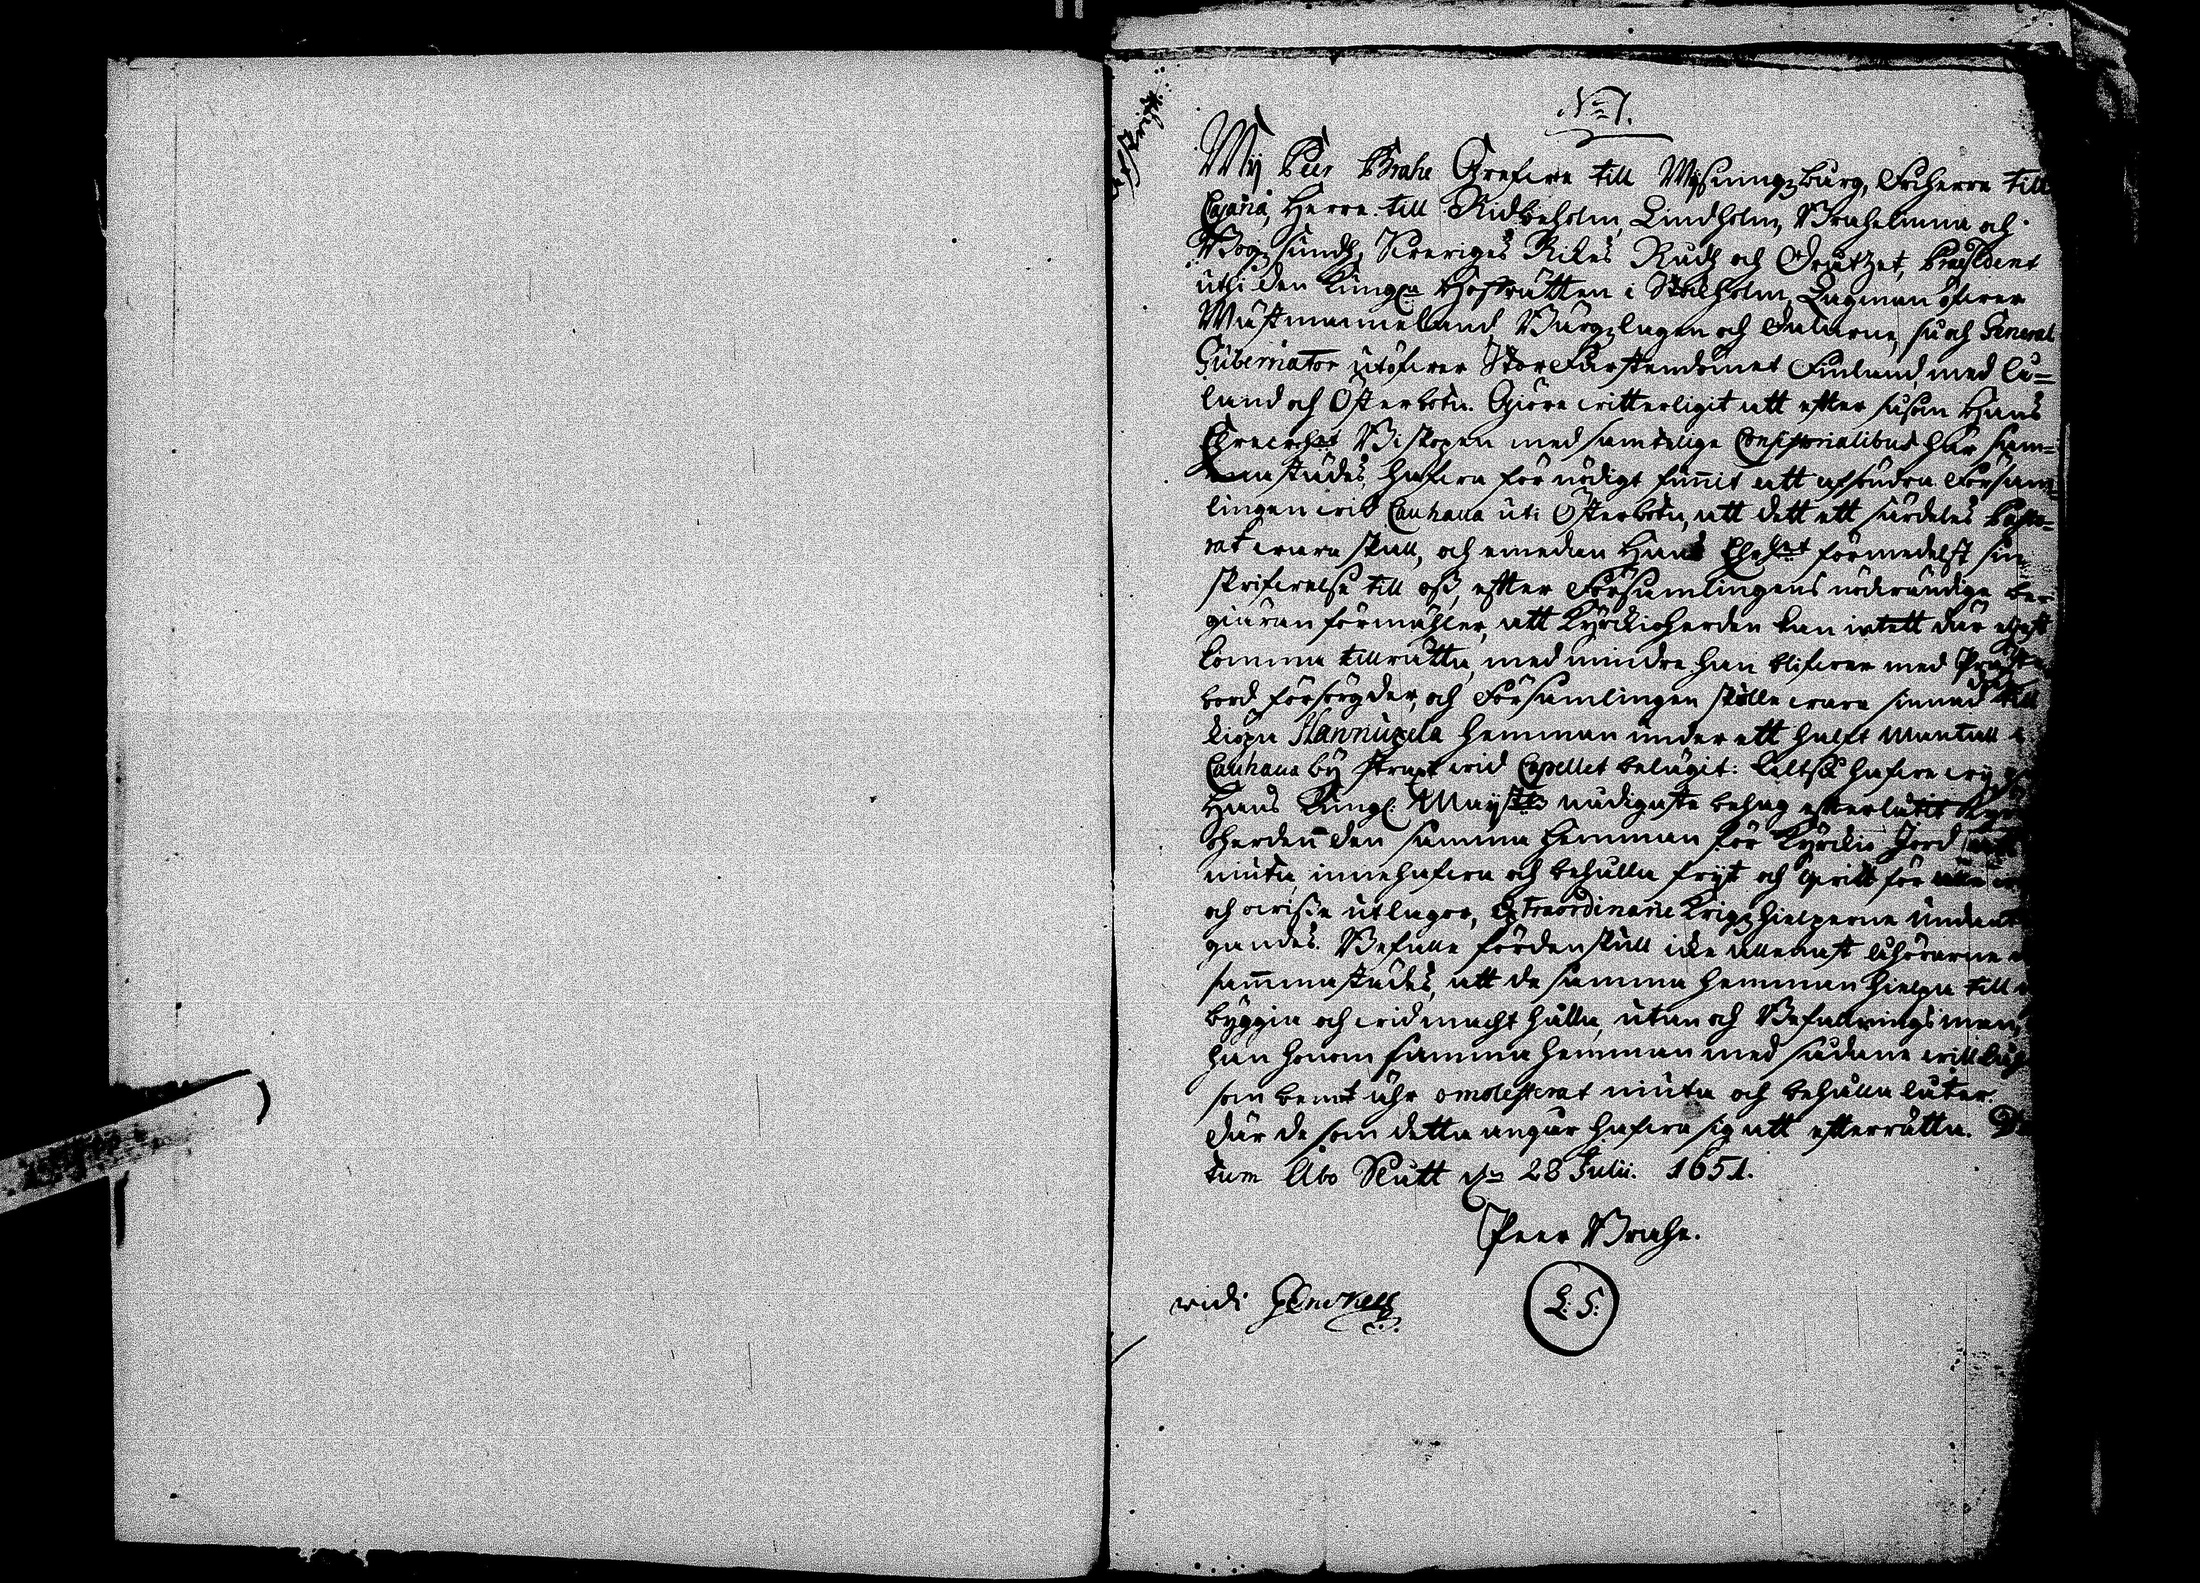 Afskrifft
N:o 1.
Wij Peer Brahe Grefwe till Wijsingzburg, Friherre till
Cajana, Herre till Ridboholm, Lindholm, Brahelinna och
Bogesundh, Sweriges Rikes Rådh och Drutzet, Præsident
uthi den Kungl:a Hofrätten i Stokholm, Lagman öfwer
Wästmanneland Bärgzlagen och Dalarne, samt General
Gubernator utöfwer StorFurstendömet Finland, med Å-
land och Österbotn. Giöre witterligit att efter såsom Hans
Ehrewht Biskopen med samtelige Consistorialibus här sam-
mastädes, hafwa för nödigt funnit att afsöndra Församb-
lingen wid Cauhava uti Österbotn, att dett ett särdeles Pasto-
rat wara skall, och emedan Hans Ehrht förmedelst sin
skrifwelse till oss, efter Församlingens nödwändige be-
giäran förmähler, att Kyrckioherden kan intett där
komma tillrätta, med mindre han blifwer med Präste
bord försörgder, och Församlingen skulle wara sinnad till
kiöpa Hannuxela hemman under ett halft Mantall i
Cauhava by strax wid Capellet belägit: Altså hafwe wij
Hans Kungl. Maij:ttz nådigste behag efterlåtit Kyrkio
herden den samma hemman för Kyrckio Jord
niuta, innehafwa och behålla frijt och qwitt för alla
och owisse utlagor, Extraordinarie Krigzhielperne undant
gandes. Befalle fördenskull icke allenast åhörarne
sammastädes, att de samma hemman hielpa till
byggia och widmacht hålla, utan och Befallningsman,
han honom samma hemman med sådane willkor
som bemt ähr omolesterat niuta och behålla låter.
Där de som detta angår hafwa sig att efterrätta. Da
tum Åbo Slått d:n 28 Julii. 1651.
Peer Brahe.
L. S.
vidi